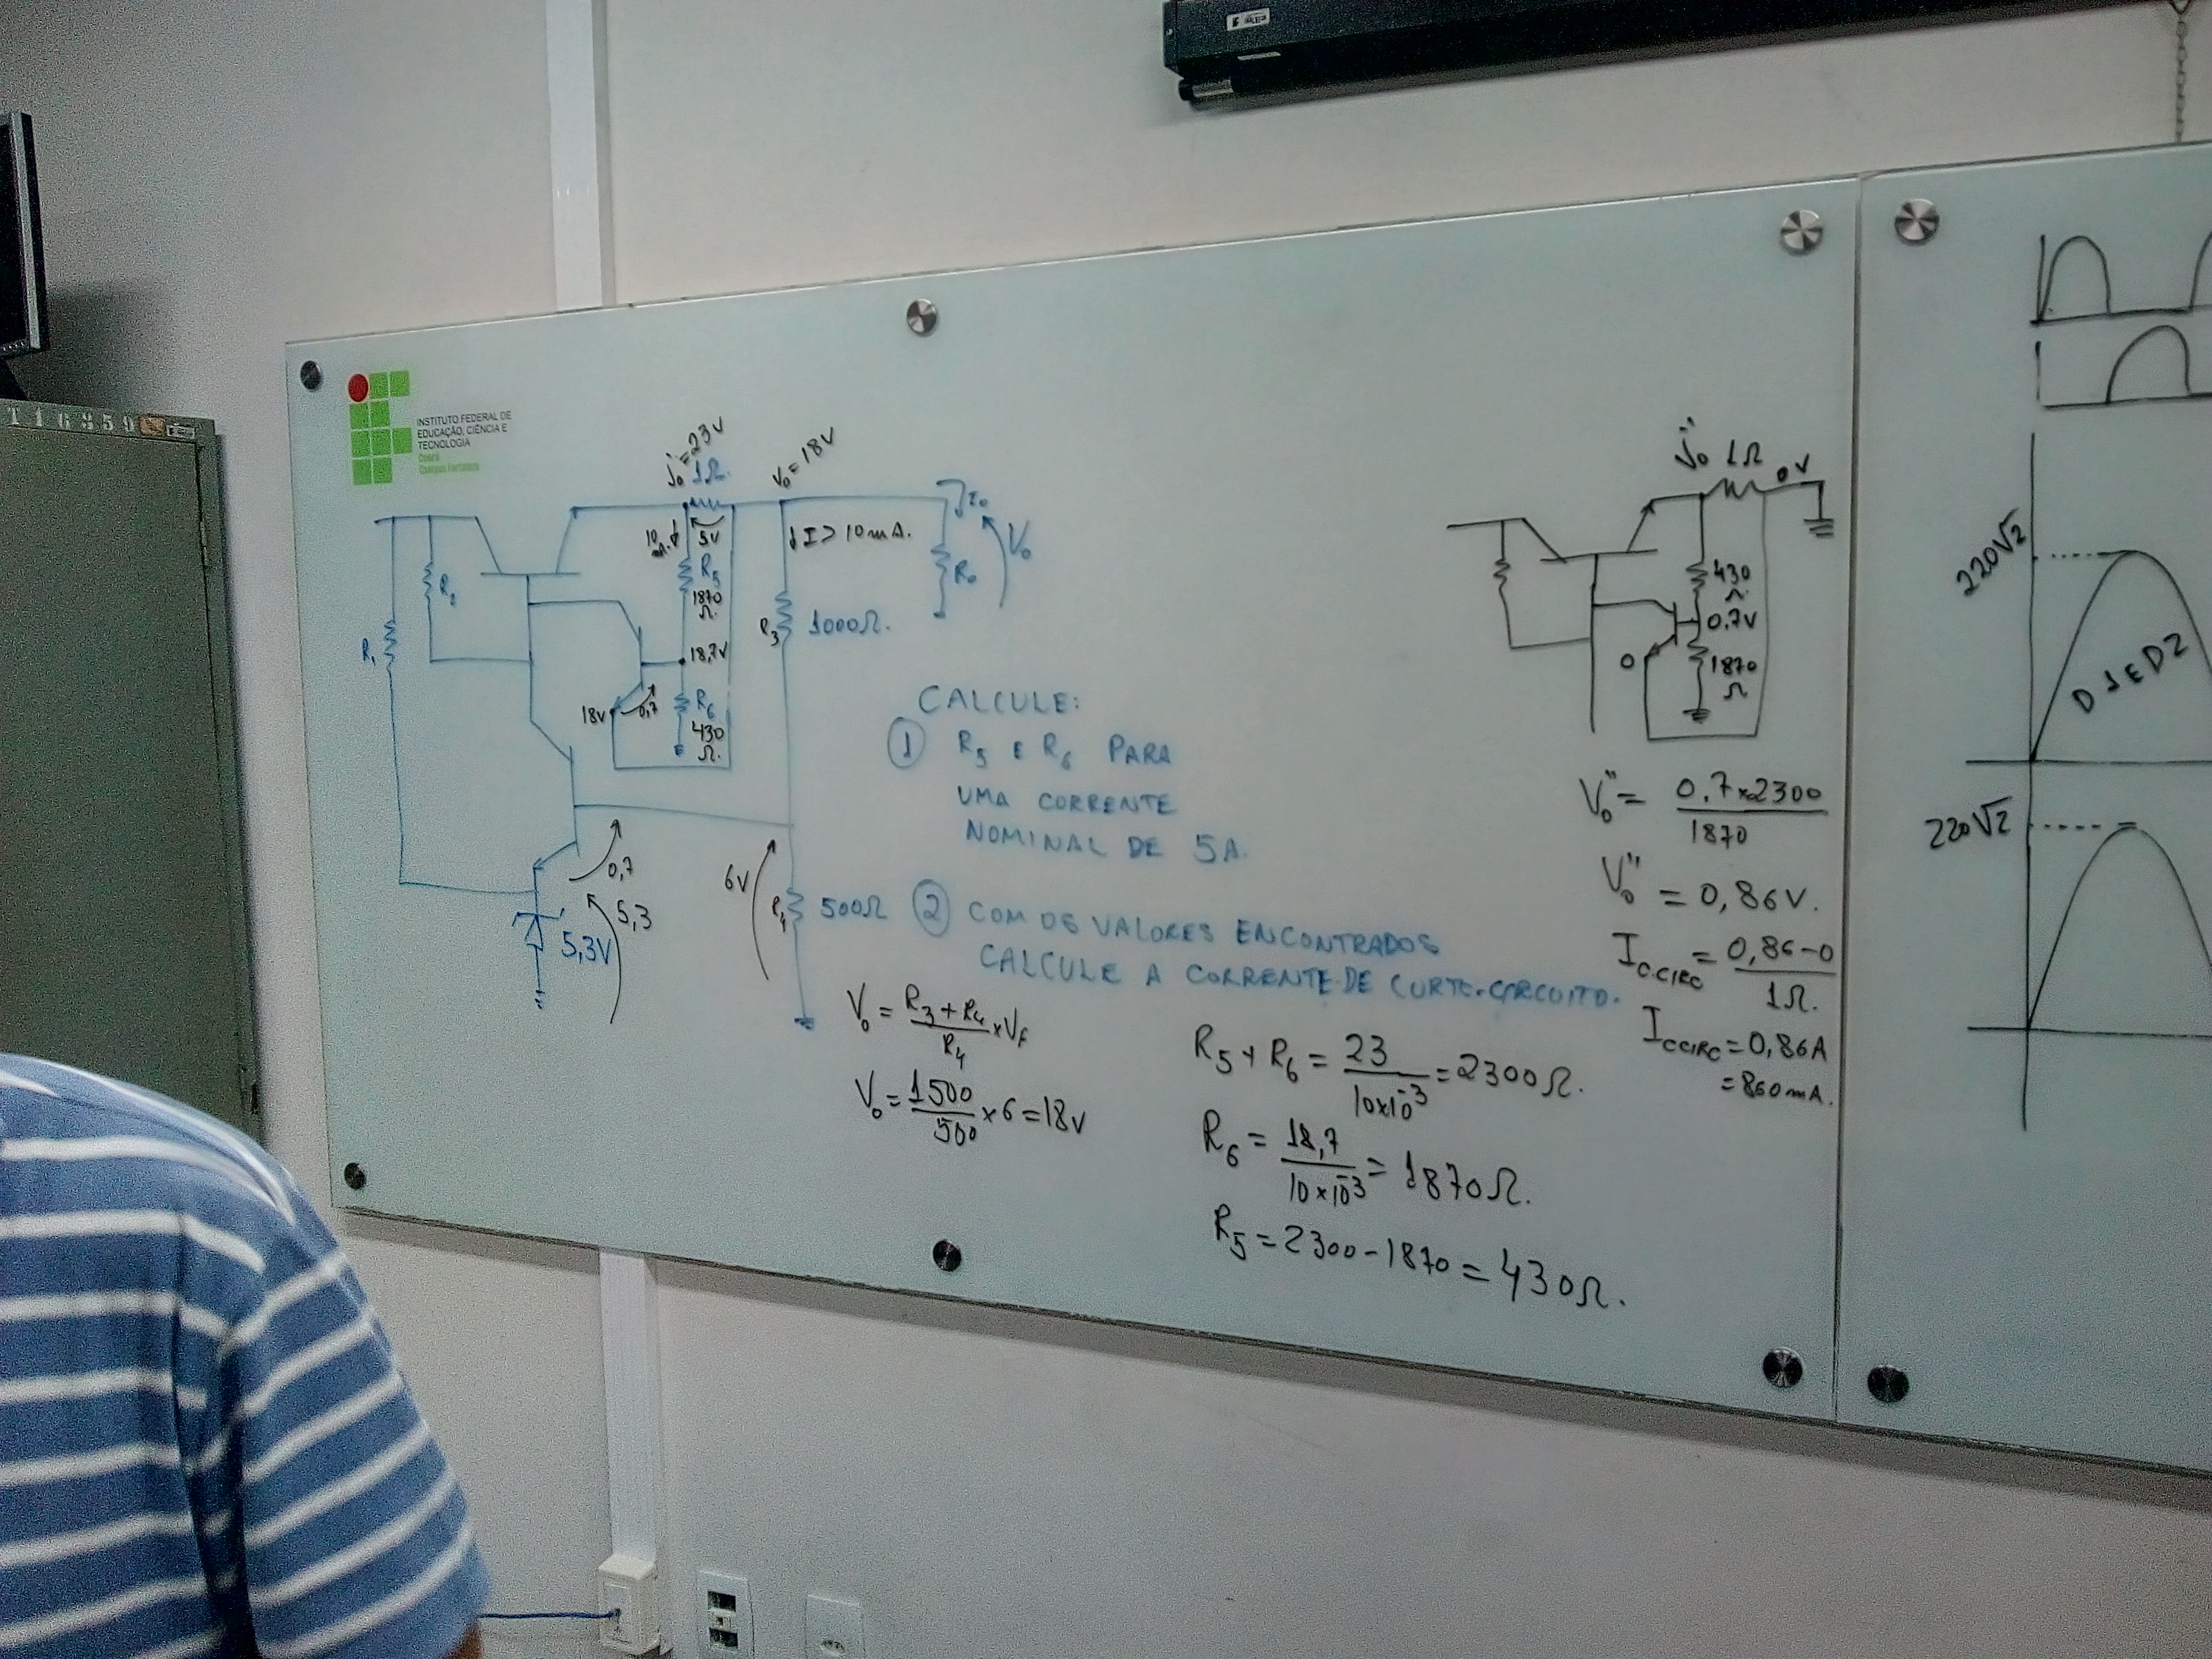 T16950
INSTITUTO FEDERAL DE
EDUCAÇÃO, CIÊNCIA E
TECNOLOGIA
Ceará
Campus Fortaleza
V₀'=23V
1Ω.
V₀=18V
I₀
10mA.
5V
I > 10mA.
V₀
R₀
R₂
R₅
1870
Ω.
R₁
R₃
1000Ω.
18,7V
18V
0,7
R₆
430
Ω.
0,7
5,3
5,3V
6V
R₄
500Ω
CALCULE:
① R₅ E R₆ PARA
UMA CORRENTE
NOMINAL DE 5A.
② COM OS VALORES ENCONTRADOS
CALCULE A CORRENTE DE CURTO-CIRCUITO.
V₀ = (R₃+R₄)/R₄ × VF
V₀ = 1500/500 × 6 = 18V
R₅ + R₆ = 23/10×10⁻³ = 2300Ω.
R₆ = 18,7/10×10⁻³ = 1870Ω.
R₅ = 2300 - 1870 = 430Ω.
V₀" 1Ω 0V
430
Ω.
0,7V
0
1870
Ω
V₀" = 0,7×2300/1870
V₀" = 0,86V.
I CCIRC = 0,86-0/1Ω.
I CCIRC = 0,86A
= 860mA.
220√2
D1 E D2
220√2